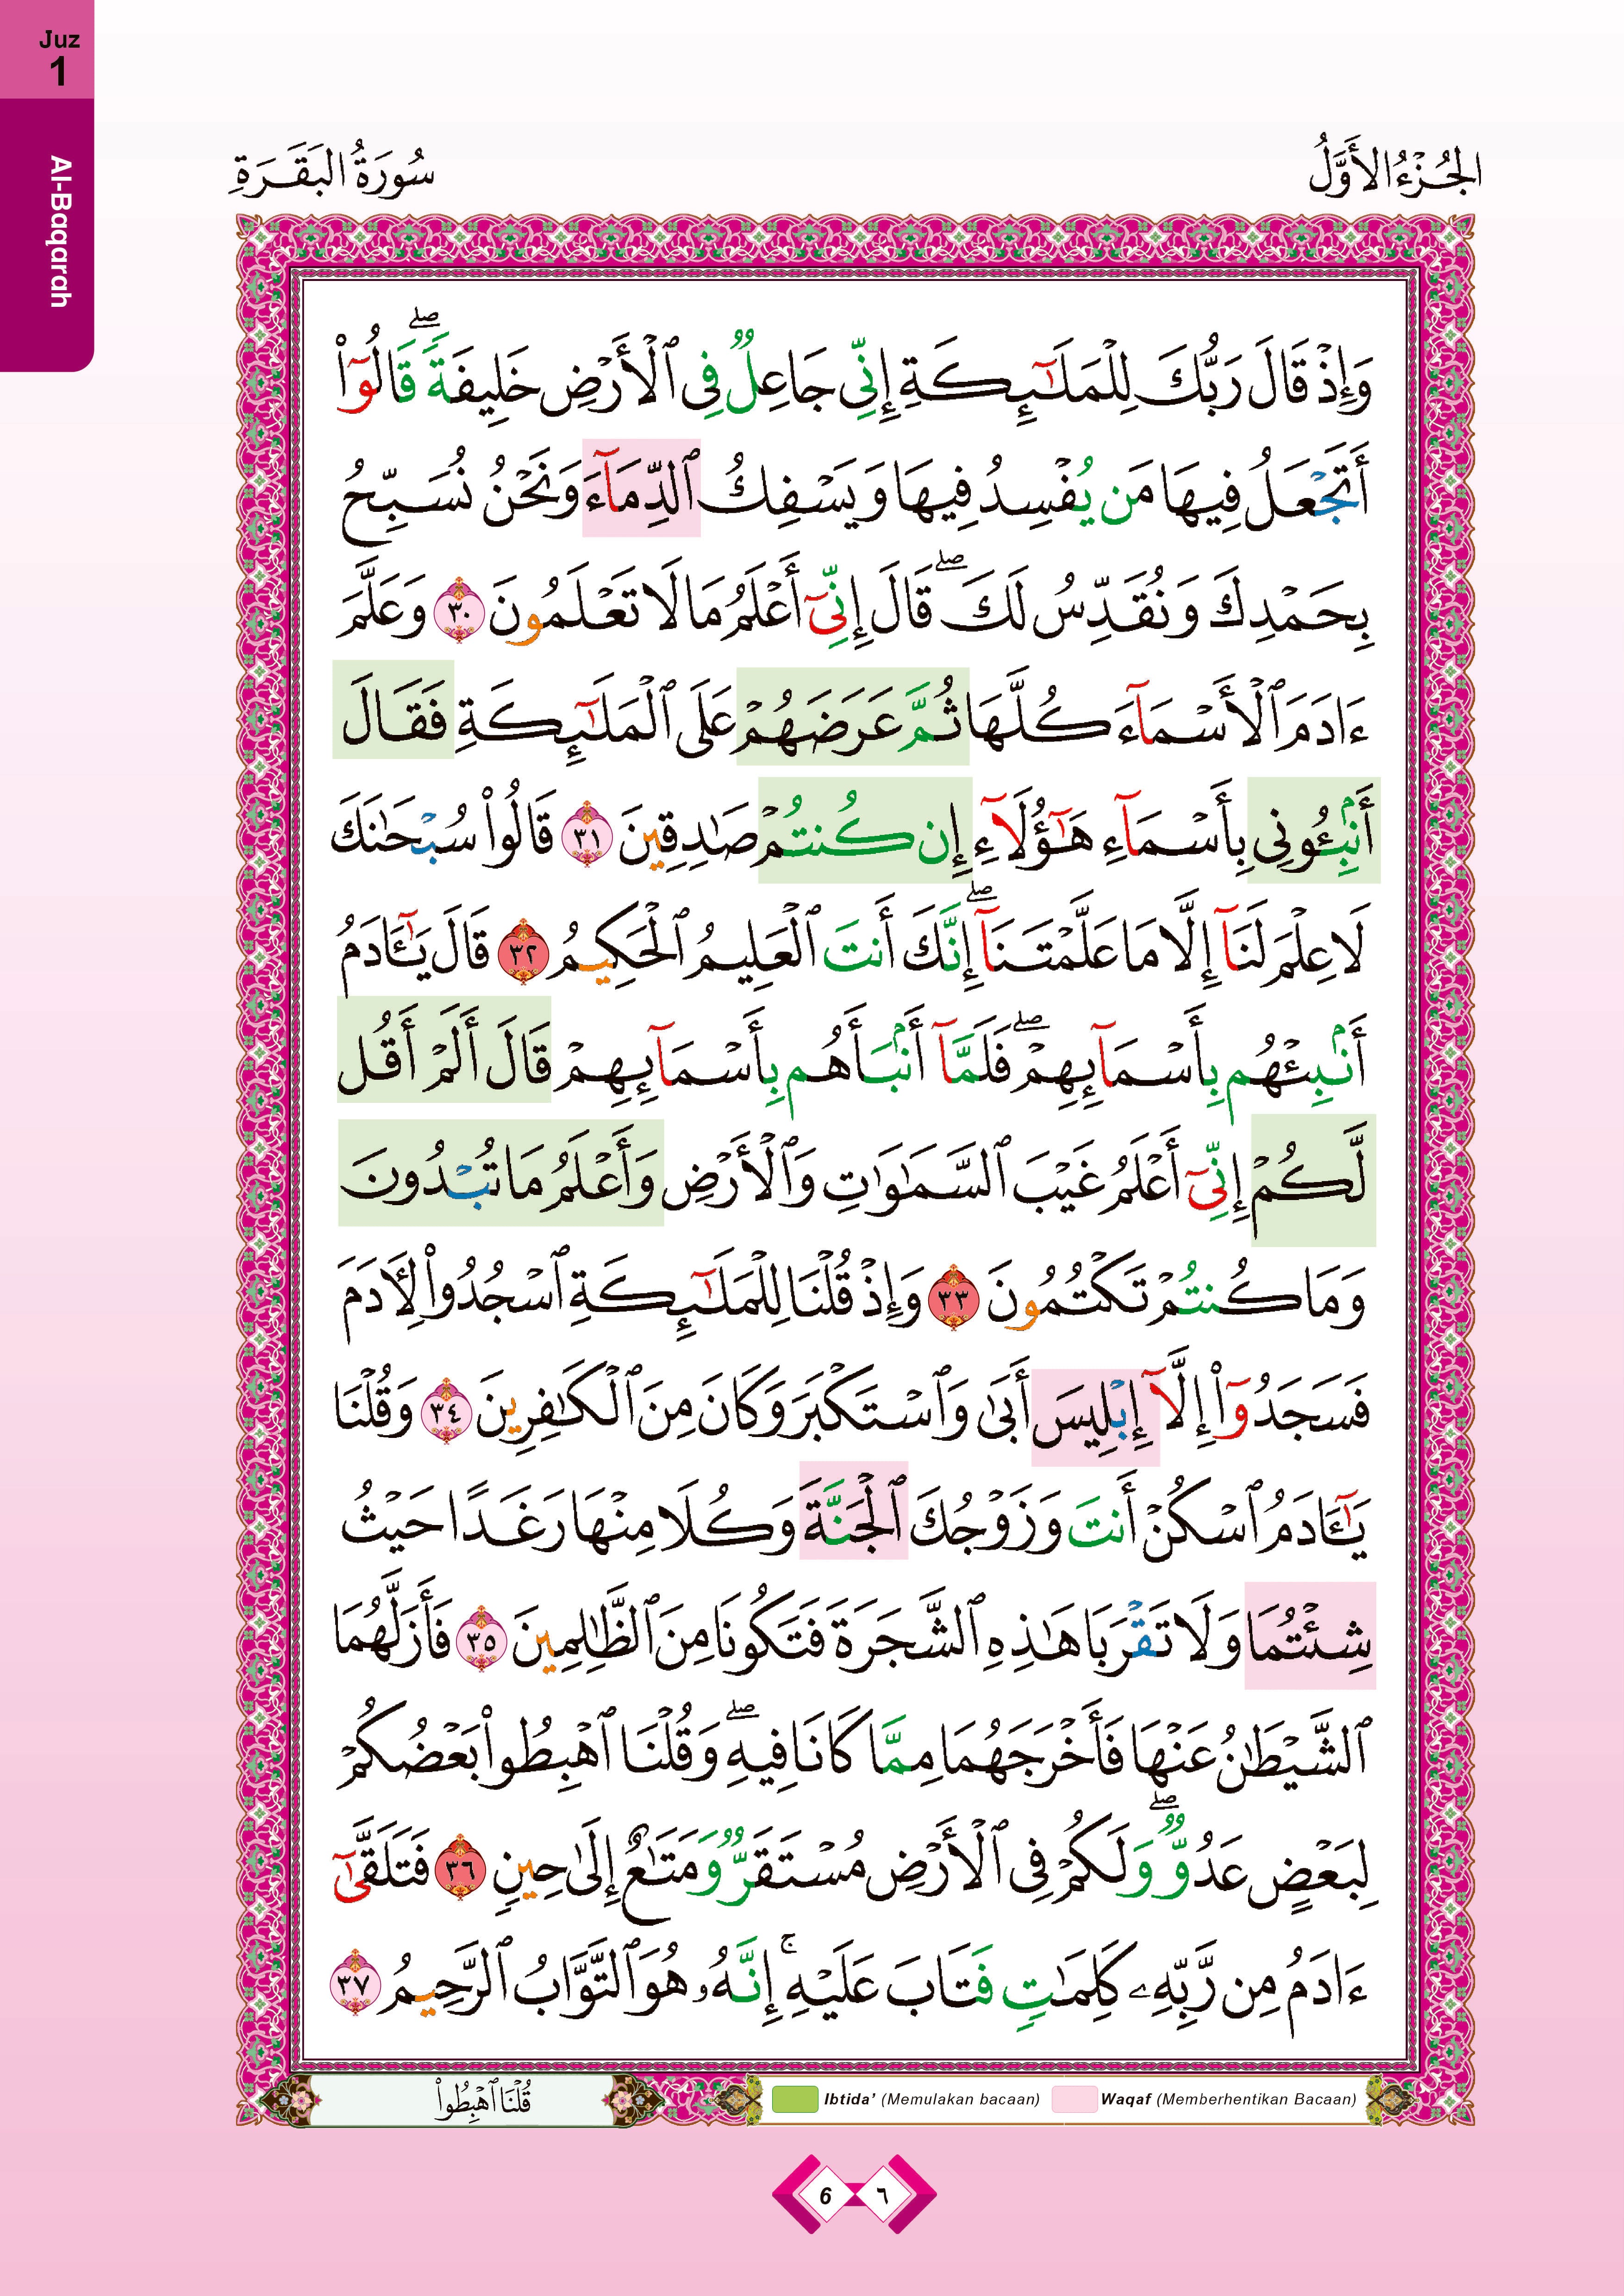 Juz
1
Al-Baqarah
الجُزْءُ الأَوَّلُ
سُورَةُ البَقَرَةِ
وَإِذْ قَالَ رَبُّكَ لِلْمَلَـٰٓئِكَةِ إِنِّى جَاعِلٌ فِى ٱلْأَرْضِ خَلِيفَةً ۖ قَالُوٓا۟
أَتَجْعَلُ فِيهَا مَن يُفْسِدُ فِيهَا وَيَسْفِكُ ٱلدِّمَآءَ وَنَحْنُ نُسَبِّحُ
بِحَمْدِكَ وَنُقَدِّسُ لَكَ ۖ قَالَ إِنِّىٓ أَعْلَمُ مَا لَا تَعْلَمُونَ ٣٠ وَعَلَّمَ
ءَادَمَ ٱلْأَسْمَآءَ كُلَّهَا ثُمَّ عَرَضَهُمْ عَلَى ٱلْمَلَـٰٓئِكَةِ فَقَالَ
أَنۢبِـُٔونِى بِأَسْمَآءِ هَـٰٓؤُلَآءِ إِن كُنتُمْ صَـٰدِقِينَ ٣١ قَالُوا۟ سُبْحَـٰنَكَ
لَا عِلْمَ لَنَآ إِلَّا مَا عَلَّمْتَنَآ ۖ إِنَّكَ أَنتَ ٱلْعَلِيمُ ٱلْحَكِيمُ ٣٢ قَالَ يَـٰٓـَٔادَمُ
أَنۢبِئْهُم بِأَسْمَآئِهِمْ ۖ فَلَمَّآ أَنۢبَأَهُم بِأَسْمَآئِهِمْ قَالَ أَلَمْ أَقُل
لَّكُمْ إِنِّىٓ أَعْلَمُ غَيْبَ ٱلسَّمَـٰوَٰتِ وَٱلْأَرْضِ وَأَعْلَمُ مَا تُبْدُونَ
وَمَا كُنتُمْ تَكْتُمُونَ ٣٣ وَإِذْ قُلْنَا لِلْمَلَـٰٓئِكَةِ ٱسْجُدُوا۟ لِـَٔادَمَ
فَسَجَدُوٓا۟ إِلَّآ إِبْلِيسَ أَبَىٰ وَٱسْتَكْبَرَ وَكَانَ مِنَ ٱلْكَـٰفِرِينَ ٣٤ وَقُلْنَا
يَـٰٓـَٔادَمُ ٱسْكُنْ أَنتَ وَزَوْجُكَ ٱلْجَنَّةَ وَكُلَا مِنْهَا رَغَدًا حَيْثُ
شِئْتُمَا وَلَا تَقْرَبَا هَـٰذِهِ ٱلشَّجَرَةَ فَتَكُونَا مِنَ ٱلظَّـٰلِمِينَ ٣٥ فَأَزَلَّهُمَا
ٱلشَّيْطَـٰنُ عَنْهَا فَأَخْرَجَهُمَا مِمَّا كَانَا فِيهِ ۖ وَقُلْنَا ٱهْبِطُوا۟ بَعْضُكُمْ
لِبَعْضٍ عَدُوٌّ ۖ وَلَكُمْ فِى ٱلْأَرْضِ مُسْتَقَرٌّ وَمَتَـٰعٌ إِلَىٰ حِينٍ ٣٦ فَتَلَقَّىٰٓ
ءَادَمُ مِن رَّبِّهِۦ كَلِمَـٰتٍ فَتَابَ عَلَيْهِ ۚ إِنَّهُۥ هُوَ ٱلتَّوَّابُ ٱلرَّحِيمُ ٣٧
قُلْنَا ٱهْبِطُوا۟
Ibtida' (Memulakan bacaan) Waqaf (Memberhentikan Bacaan)
6 ٦